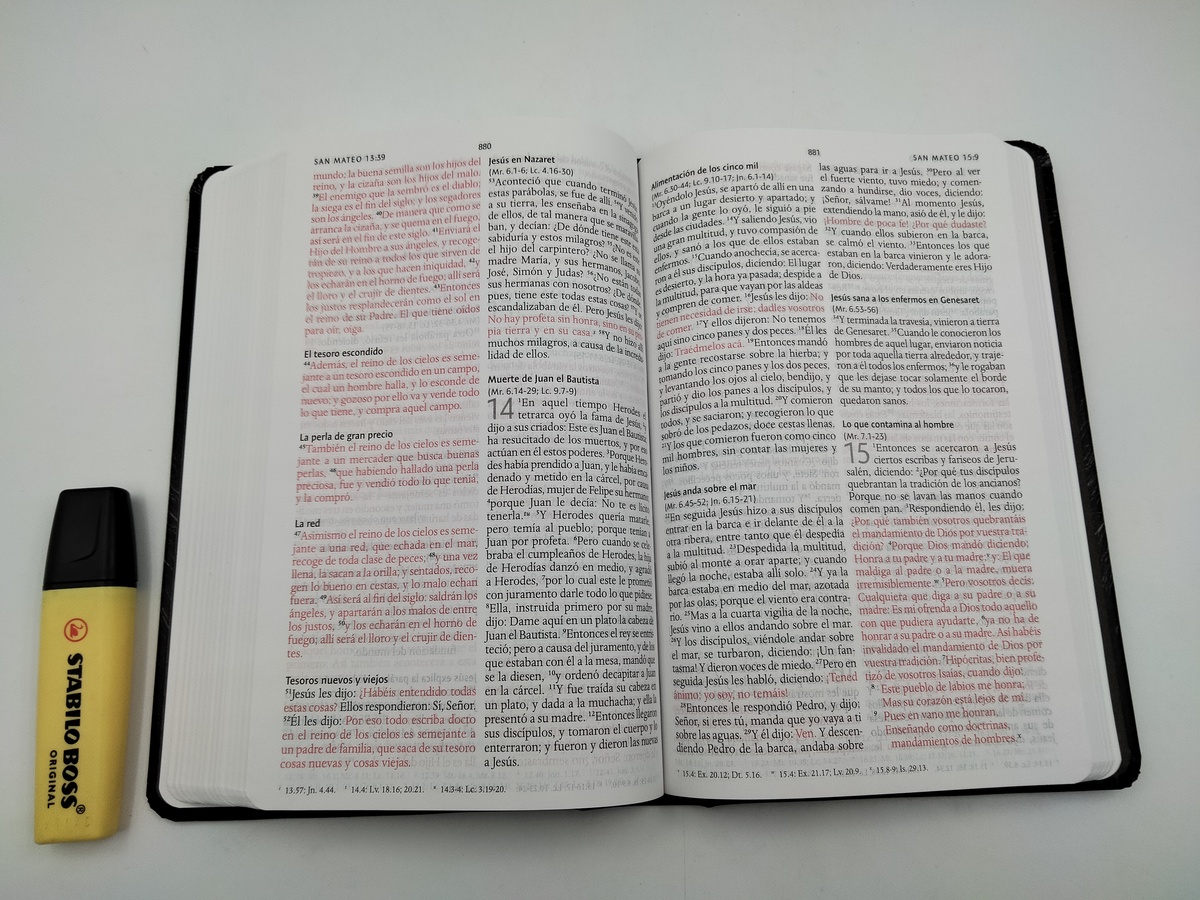 SAN MATEO 13:39
880
mundo; la buena semilla son los hijos del
reino, y la cizaña son los hijos del malo.
³⁹El enemigo que la sembró es el diablo;
la siega es el fin del siglo; y los segadores
son los ángeles. ⁴⁰De manera que como se
arranca la cizaña, y se quema en el fuego,
así será en el fin de este siglo. ⁴¹Enviará el
Hijo del Hombre a sus ángeles, y recoge-
rán de su reino a todos los que sirven de
tropiezo, y a los que hacen iniquidad, ⁴²y
los echarán en el horno de fuego; allí será
el lloro y el crujir de dientes. ⁴³Entonces
los justos resplandecerán como el sol en
el reino de su Padre. El que tiene oídos
para oír, oiga.
El tesoro escondido
⁴⁴Además, el reino de los cielos es seme-
jante a un tesoro escondido en un campo,
el cual un hombre halla, y lo esconde de
nuevo; y gozoso por ello va y vende todo
lo que tiene, y compra aquel campo.
La perla de gran precio
⁴⁵También el reino de los cielos es seme-
jante a un mercader que busca buenas
perlas, ⁴⁶que habiendo hallado una perla
preciosa, fue y vendió todo lo que tenía,
y la compró.
La red
⁴⁷Asimismo el reino de los cielos es seme-
jante a una red, que echada en el mar,
recoge de toda clase de peces; ⁴⁸y una vez
llena, la sacan a la orilla; y sentados, reco-
gen lo bueno en cestas, y lo malo echan
fuera. ⁴⁹Así será al fin del siglo: saldrán los
ángeles, y apartarán a los malos de entre
los justos, ⁵⁰y los echarán en el horno de
fuego; allí será el lloro y el crujir de dien-
tes.
Tesoros nuevos y viejos
⁵¹Jesús les dijo: ¿Habéis entendido todas
estas cosas? Ellos respondieron: Sí, Señor.
⁵²Él les dijo: Por eso todo escriba docto
en el reino de los cielos es semejante a
un padre de familia, que saca de su tesoro
cosas nuevas y cosas viejas.
Jesús en Nazaret
(Mr. 6.1-6; Lc. 4.16-30)
⁵³Aconteció que cuando terminó Jesús
estas parábolas, se fue de allí. ⁵⁴Y
a su tierra, les enseñaba en la sinagoga
de ellos, de tal manera que se maravilla-
ban, y decían: ¿De dónde tiene este esta
sabiduría y estos milagros? ⁵⁵¿No es este
el hijo del carpintero? ¿No se llama su
madre María, y sus hermanos, Jacobo,
José, Simón y Judas? ⁵⁶¿No están todas
sus hermanas con nosotros? ¿De dónde,
pues, tiene este todas estas cosas? ⁵⁷Y se
escandalizaban de él. Pero Jesús les dijo:
No hay profeta sin honra, sino en su pro-
pia tierra y en su casa. ⁵⁸Y no hizo allí
muchos milagros, a causa de la incredu-
lidad de ellos.
Muerte de Juan el Bautista
(Mr. 6.14-29; Lc. 9.7-9)
14 ¹En aquel tiempo Herodes el
tetrarca oyó la fama de Jesús, ²y
dijo a sus criados: Este es Juan el Bautista;
ha resucitado de los muertos, y por eso
actúan en él estos poderes. ³Porque Hero-
des había prendido a Juan, y le había enca-
denado y metido en la cárcel, por causa
de Herodías, mujer de Felipe su hermano;
⁴porque Juan le decía: No te es lícito
tenerla. ⁵Y Herodes quería matarle,
pero temía al pueblo; porque tenían a
Juan por profeta. ⁶Pero cuando se cele-
braba el cumpleaños de Herodes, la hija
de Herodías danzó en medio, y agradó
a Herodes, ⁷por lo cual este le prometió
con juramento darle todo lo que pidiese.
⁸Ella, instruida primero por su madre,
dijo: Dame aquí en un plato la cabeza de
Juan el Bautista. ⁹Entonces el rey se entris-
teció; pero a causa del juramento, y de los
que estaban con él a la mesa, mandó que
se la diesen, ¹⁰y ordenó decapitar a Juan
en la cárcel. ¹¹Y fue traída su cabeza en
un plato, y dada a la muchacha; y ella la
presentó a su madre. ¹²Entonces llegaron
sus discípulos, y tomaron el cuerpo y lo
enterraron; y fueron y dieron las nuevas
a Jesús.
13.57: Jn. 4.44. 14.4: Lv. 18.16; 20.21. 14.3-4: Lc. 3.19-20.
881
SAN MATEO 15:9
Alimentación de los cinco mil
(Mr. 6.30-44; Lc. 9.10-17; Jn. 6.1-14)
¹³Oyéndolo Jesús, se apartó de allí en una
barca a un lugar desierto y apartado; y
cuando la gente lo oyó, le siguió a pie
desde las ciudades. ¹⁴Y saliendo Jesús, vio
una gran multitud, y tuvo compasión de
ellos, y sanó a los que de ellos estaban
enfermos. ¹⁵Cuando anochecía, se acerca-
ron a él sus discípulos, diciendo: El lugar
es desierto, y la hora ya pasada; despide a
la multitud, para que vayan por las aldeas
y compren de comer. ¹⁶Jesús les dijo: No
tienen necesidad de irse; dadles vosotros
de comer. ¹⁷Y ellos dijeron: No tenemos
aquí sino cinco panes y dos peces. ¹⁸Él les
dijo: Traédmelos acá. ¹⁹Entonces mandó
a la gente recostarse sobre la hierba; y
tomando los cinco panes y los dos peces,
y levantando los ojos al cielo, bendijo, y
partió y dio los panes a los discípulos, y
los discípulos a la multitud. ²⁰Y comieron
todos, y se saciaron; y recogieron lo que
sobró de los pedazos, doce cestas llenas.
²¹Y los que comieron fueron como cinco
mil hombres, sin contar las mujeres y
los niños.
Jesús anda sobre el mar
(Mr. 6.45-52; Jn. 6.15-21)
²²En seguida Jesús hizo a sus discípulos
entrar en la barca e ir delante de él a la
otra ribera, entre tanto que él despedía
a la multitud. ²³Despedida la multitud,
subió al monte a orar aparte; y cuando
llegó la noche, estaba allí solo. ²⁴Y ya la
barca estaba en medio del mar, azotada
por las olas; porque el viento era contra-
rio. ²⁵Mas a la cuarta vigilia de la noche,
Jesús vino a ellos andando sobre el mar.
²⁶Y los discípulos, viéndole andar sobre
el mar, se turbaron, diciendo: ¡Un fan-
tasma! Y dieron voces de miedo. ²⁷Pero en
seguida Jesús les habló, diciendo: ¡Tened
ánimo; yo soy, no temáis!
²⁸Entonces le respondió Pedro, y dijo:
Señor, si eres tú, manda que yo vaya a ti
sobre las aguas. ²⁹Y él dijo: Ven. Y descen-
diendo Pedro de la barca, andaba sobre
las aguas para ir a Jesús. ³⁰Pero al ver
el fuerte viento, tuvo miedo; y comen-
zando a hundirse, dio voces, diciendo:
¡Señor, sálvame! ³¹Al momento Jesús,
extendiendo la mano, asió de él, y le dijo:
¡Hombre de poca fe! ¿Por qué dudaste?
³²Y cuando ellos subieron en la barca,
se calmó el viento. ³³Entonces los que
estaban en la barca vinieron y le adora-
ron, diciendo: Verdaderamente eres Hijo
de Dios.
Jesús sana a los enfermos en Genesaret
(Mr. 6.53-56)
³⁴Y terminada la travesía, vinieron a tierra
de Genesaret. ³⁵Cuando le conocieron los
hombres de aquel lugar, enviaron noticia
por toda aquella tierra alrededor, y traje-
ron a él todos los enfermos; ³⁶y le rogaban
que les dejase tocar solamente el borde
de su manto; y todos los que lo tocaron,
quedaron sanos.
Lo que contamina al hombre
(Mr. 7.1-23)
15 ¹Entonces se acercaron a Jesús
ciertos escribas y fariseos de Jeru-
salén, diciendo: ²¿Por qué tus discípulos
quebrantan la tradición de los ancianos?
Porque no se lavan las manos cuando
comen pan. ³Respondiendo él, les dijo:
¿Por qué también vosotros quebrantáis
el mandamiento de Dios por vuestra tra-
dición? ⁴Porque Dios mandó diciendo:
Honra a tu padre y a tu madre; y: El que
maldiga al padre o a la madre, muera
irremisiblemente. ⁵Pero vosotros decís:
Cualquiera que diga a su padre o a su
madre: Es mi ofrenda a Dios todo aquello
con que pudiera ayudarte, ⁶ya no ha de
honrar a su padre o a su madre. Así habéis
invalidado el mandamiento de Dios por
vuestra tradición. ⁷Hipócritas, bien profe-
tizó de vosotros Isaías, cuando dijo:
⁸ Este pueblo de labios me honra;
Mas su corazón está lejos de mí.
⁹ Pues en vano me honran,
Enseñando como doctrinas,
mandamientos de hombres.
15.4: Ex. 20.12; Dt. 5.16. 15.4: Ex. 21.17; Lv. 20.9. 15.8-9: Is. 29.13.
STABILO BOSS®
ORIGINAL